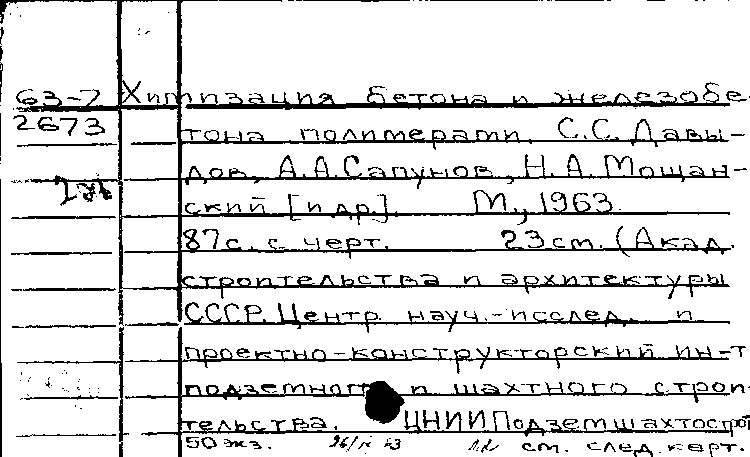 63-7 Химизация бетона и железобе-
2673 тона полимерами. С.С. Давы-
дов, А.А. Сапунов, Н.А. Мощан-
ский [и др.]. М., 1963.
87с. с черт. 23см. (Акад.
строительства и архитектуры
СССР. Центр. науч.-исслед. и
проектно-конструкторский ин-т
подземного и шахтного строи-
тельства. ЦНИИПодземшахтострой
50 экз. см. след. карт.